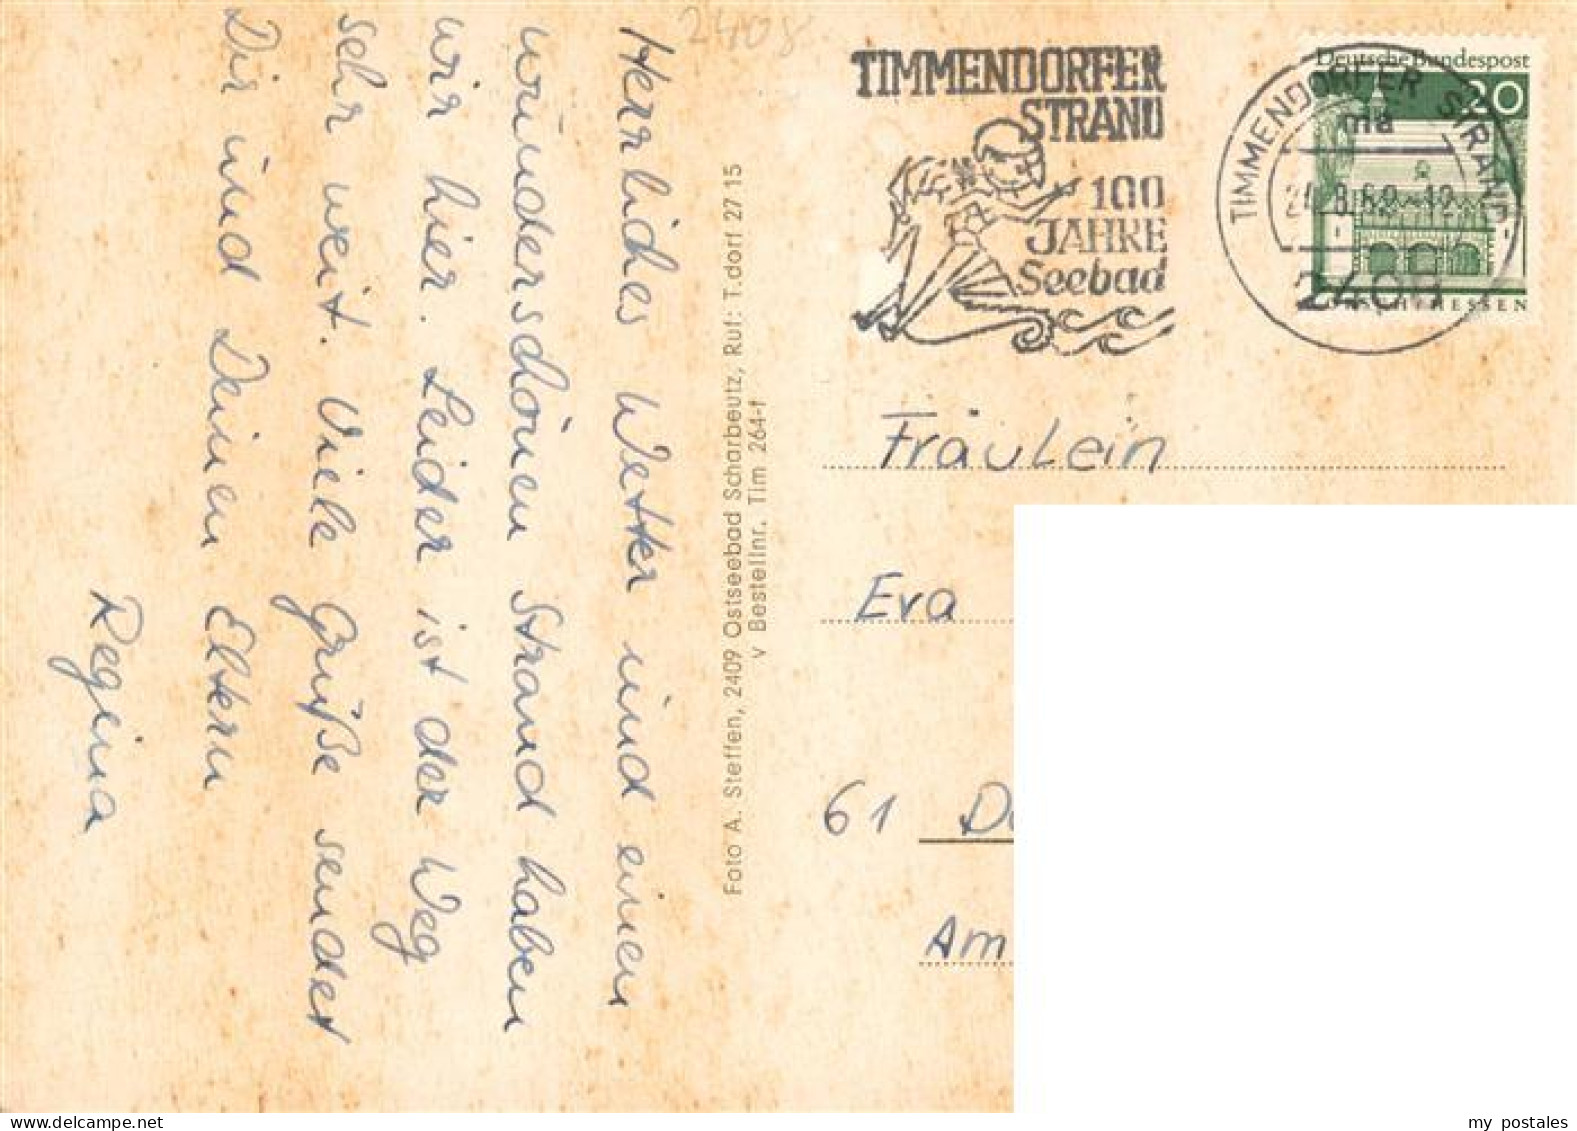 2408
TIMMENDORFER
STRAND
100
JAHRE
Seebad
TIMMENDORFER STRAND
ma
2408
Deutsche Bundespost
20
LORSCH/HESSEN
Herrliches Wetter und einen
wunderschönen Strand haben
wir hier. Leider ist der Weg
sehr weit. Viele Grüße sendet
Dir und Deinen Eltern
Regina
Foto A. Steffen, 2409 Ostseebad Scharbeutz, Ruf: T.dorf 27 15
v Bestellnr. Tim 264-f
Fräulein
Eva
61 Da
Am
my postales